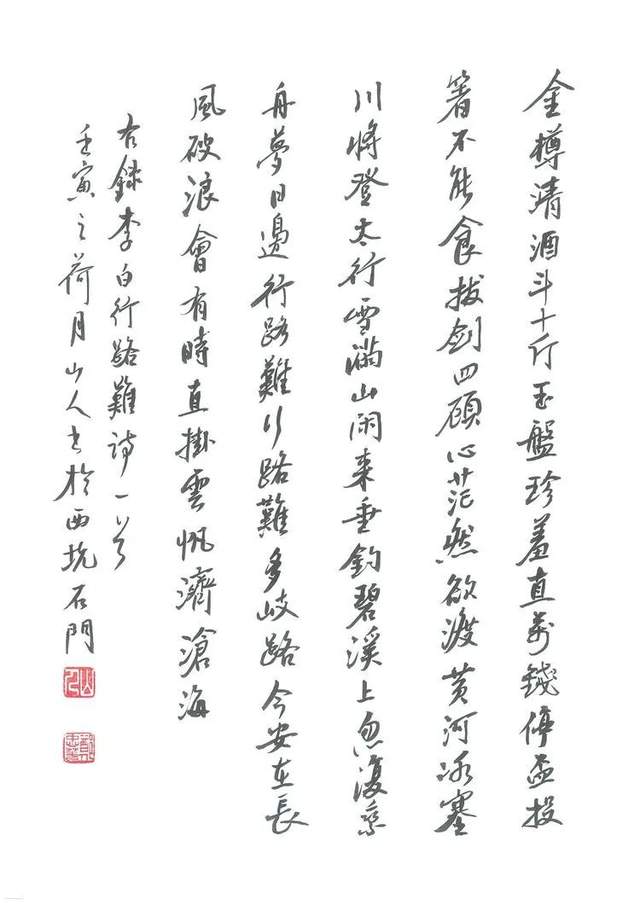 金樽清酒斗十斤玉盤珍羞直萬錢停盃投
箸不能食拔劍四顧心茫然欲渡黃河冰塞
川將登太行雪滿山閑來垂釣碧溪上忽復乘
舟夢日邊行路難行路難多岐路今安在長
風破浪會有時直掛雲帆濟滄海
右錄李白行路難詩一首
壬寅之荷月山人書於西坑石門
山人